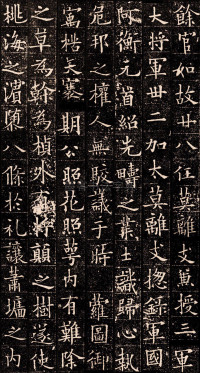 餘官如故廿八任莫離支兼授三軍
大將軍卅二加太莫離支摠錄軍國
阿衡元首紹先疇之業士識歸心執
危邦之權人無駮議于時蘿圖御
寓楛矢褰期公照花照萼內有難除
之草為榦為楨外有將顛之樹遂使
桃海之濱隳八條於礼讓蕭墻之內